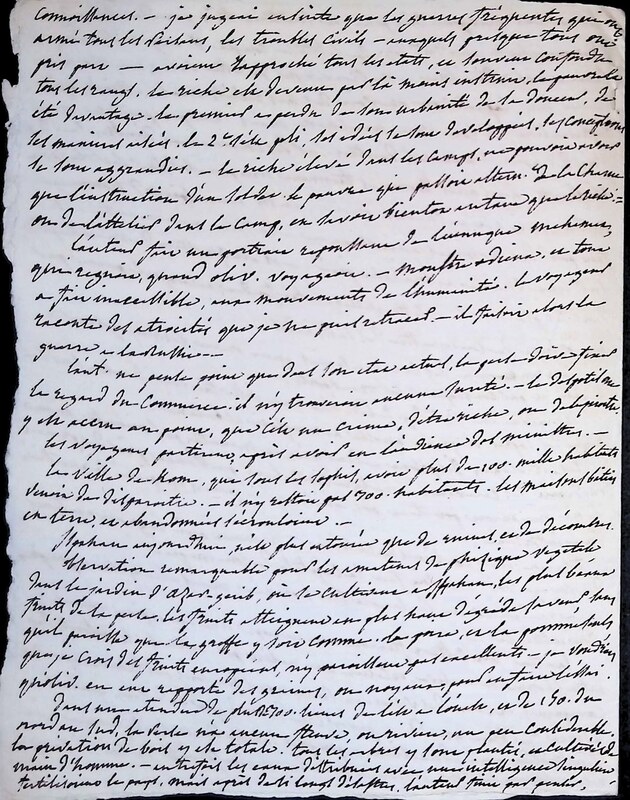 connoissances. — je jugeai ensuite que les guerres fréquentes qui ont
armé tous les Persans, les troubles civils — auxquels presque tous ont
pris part — avoient rapproché tous les etats, et souvent confondu
tous les rangs. le riche est devenu par là moins instruit, le pauvre l'a
été davantage. le premier a perdu de son urbanité de sa douceur, de
ses manières aisées. le 2e s'est poli, ses idées se sont developpées, ses conceptions
se sont aggrandies. — le riche élevé dans les camps, ne pouvoit avoir
que l'instruction d'un soldat. le pauvre qui passoit altern. de la charrue
ou de l'attelier dans le camp, en savoit bientot autant que le riche. —
l'auteur fait un portrait repoussant de l'eunuque mehemet,
qui regnoit, quand oliv. voyageoit. — monstre odieux, et tout
a fait inaccessible, aux mouvements de l'humanité. le voyageur
raconte des atrocités que je ne puis retracer. — il faisoit alors la
guerre a la Russie. —
l'aut. ne pense point que dans son etat actuel, la perse doive fixer
le regard du commerce. il n'y trouveroit aucune sureté. — le despotisme
y est accru au point, que c'est un crime, d'être riche, ou de le paroitre.
les voyageurs partirent, après avoir eu l'audience des ministres. —
la ville de Kom, que sous les sophis, avoit plus de 100. mille habitants
venoit de disparoitre. — il n'y restoit pas 300. habitants. les maisons baties
en terre, et abandonnées s'écrouloient. —
Ispahan aujourdhui, n'est plus entourée que de ruines, et de décombres.
Observation remarquable pour les amateurs de phisique vegetale
dans le jardin d'azar-gerib, où se cultivent a Ispahan, les plus beaux
fruits de la perse, les fruits atteignent un plus haut dégré de saveur, sans
qu'il paroisse que la greffe y soit connue. la poire, et la pomme seuls
que je crois des fruits européens, n'y paroissent pas excellents. — je voudrois
qu'oliv. en eut rapporté des graines, ou noyaux, pour en faire l'essai.
Dans une etendue de plus de 300. lieues de l'est a l'ouest, et de 150. du
nord au sud, la perse n'a aucun fleuve, ou riviere, un peu considerable.
la privation de bois y est totale. tous les arbres y sont plantés, et cultivés de
main d'homme. — autrefois les eaux distribuées avec une intelligence singuliere
fertilisoient le pays, mais après de si longs désastres, l'auteur finit par penser,